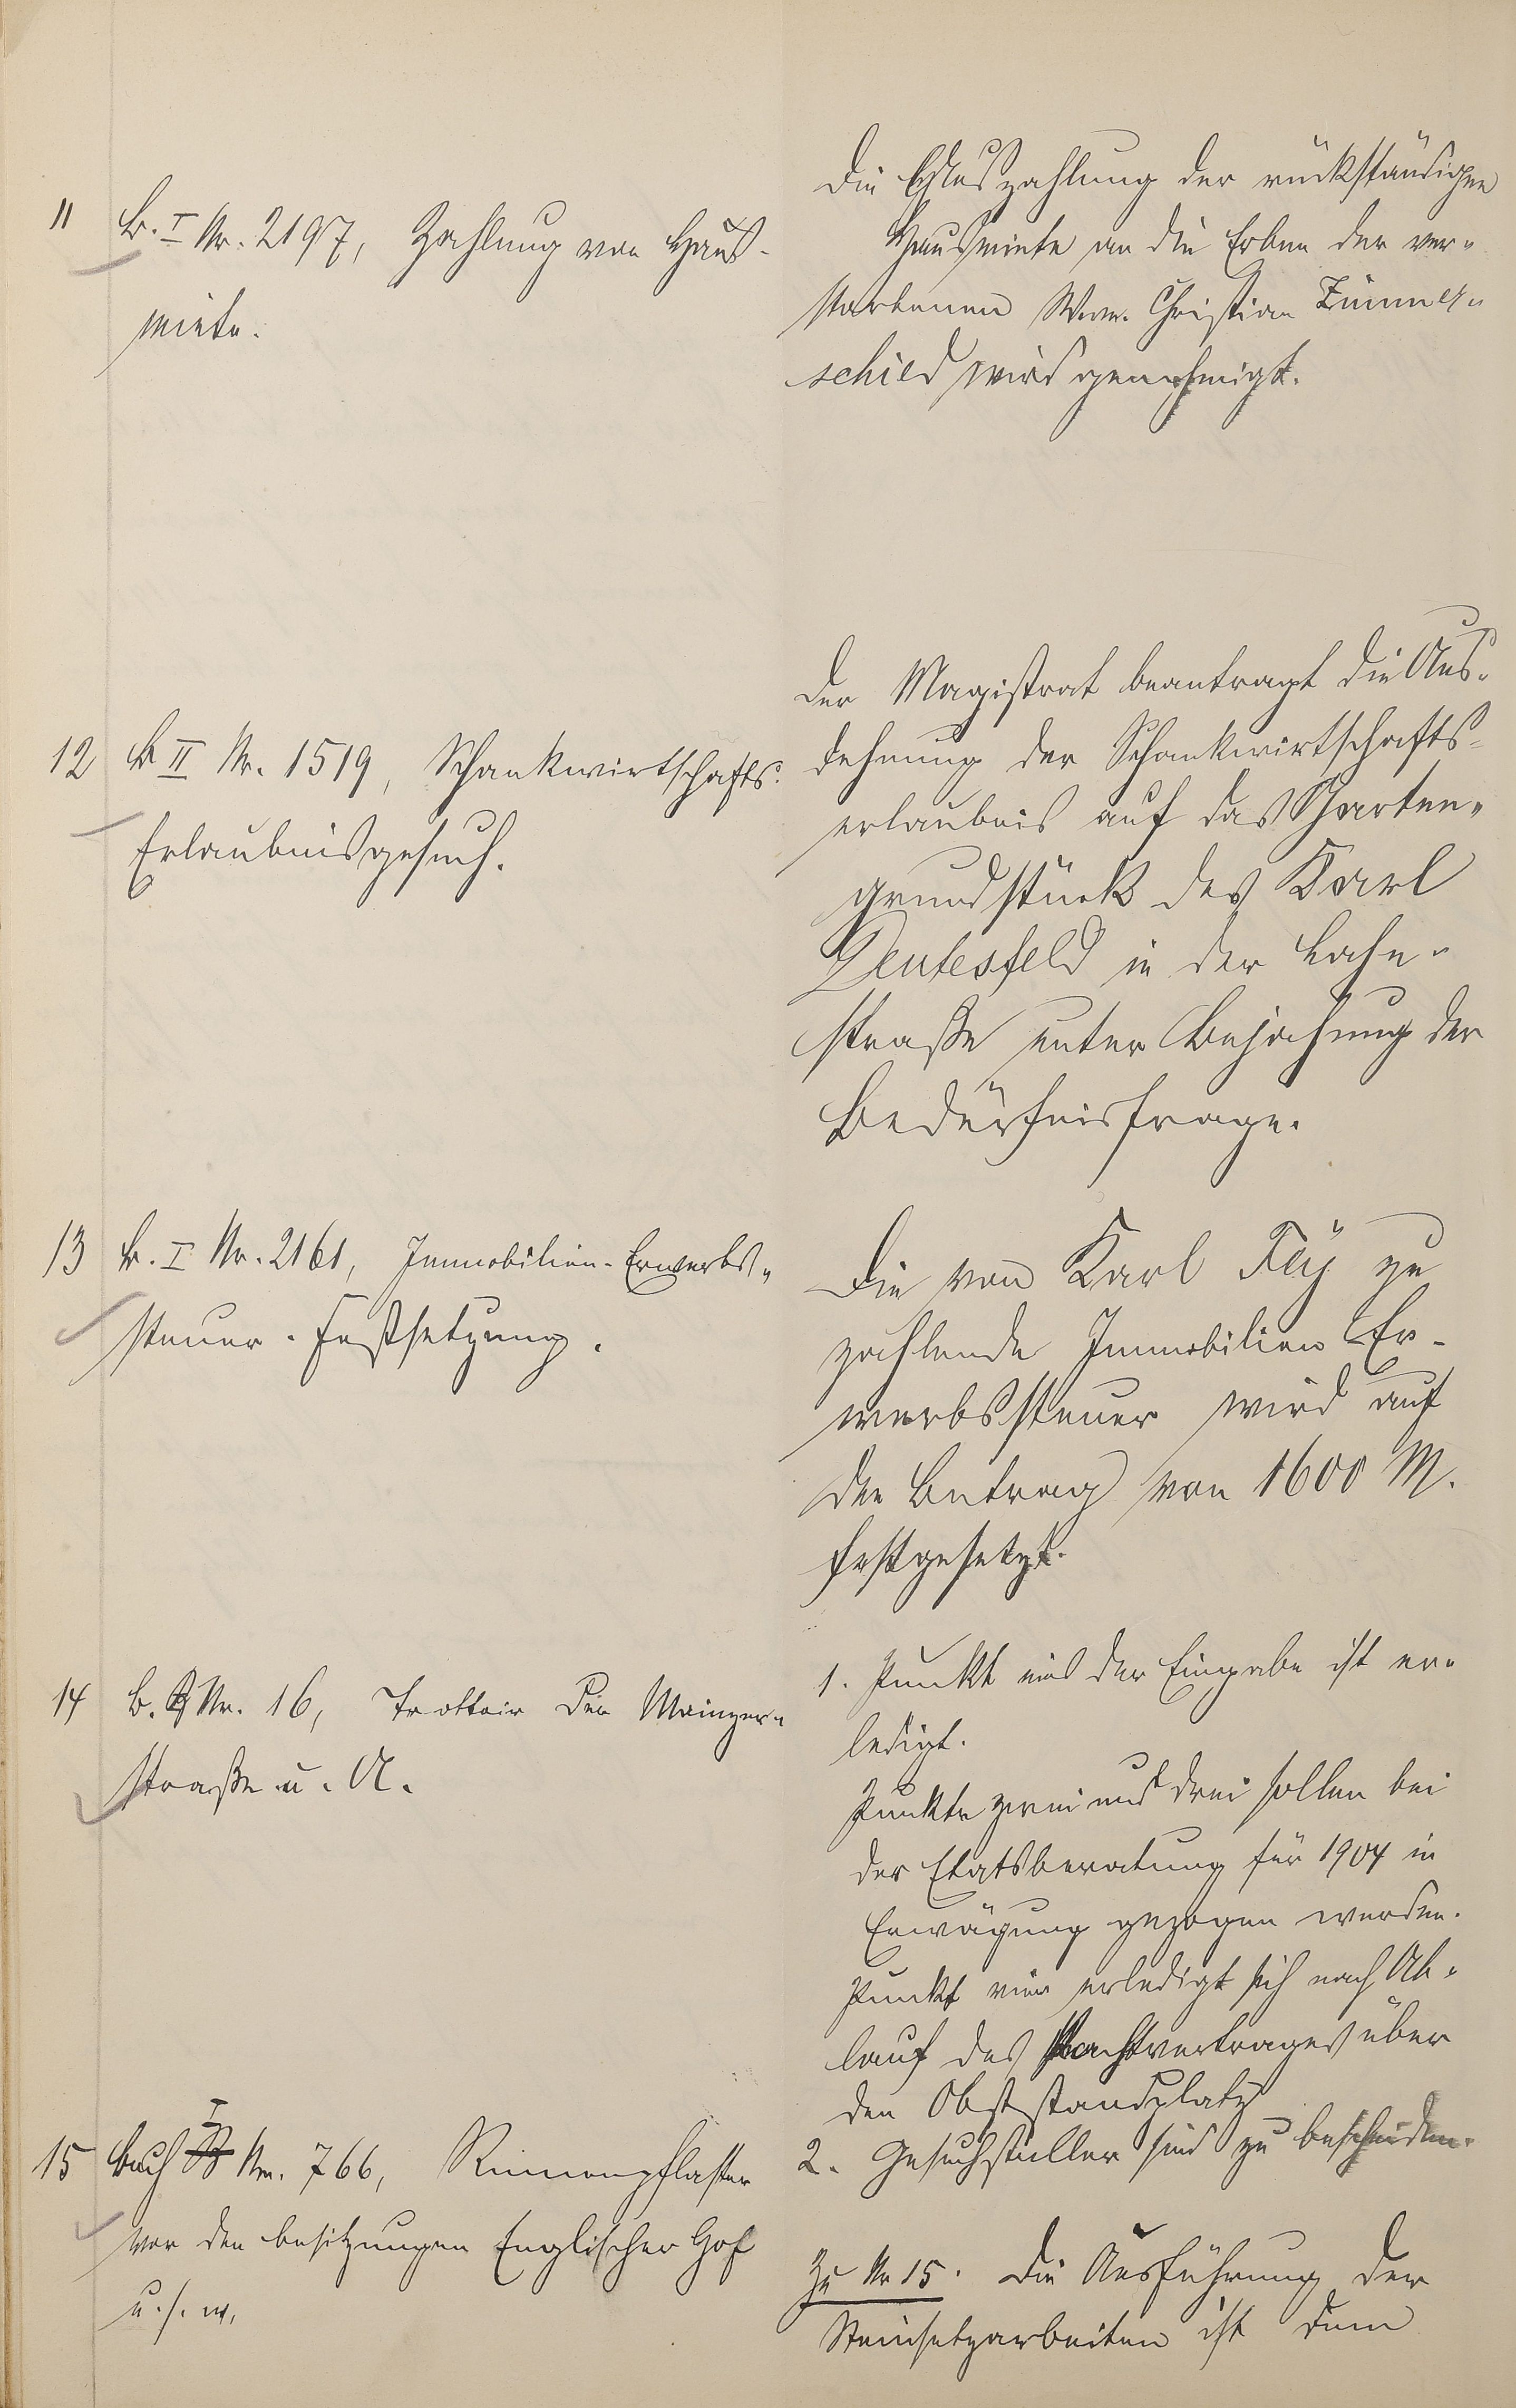 11 B. I Nr. 2197, Zahlung von Haus-
miete.
Die Auszahlung der rückständigen
Hausmiete an die Erben der ver-
storbenen Wwe. Christian Zimmer-
schied wird genehmigt.
12 B II Nr. 1519, Schankwirtschafts-
Erlaubnisgesuch.
Der Magistrat beantragt die Aus-
dehnung der Schankwirtschafts-
erlaubnis auf das Garten-
grundstück des Karl
Deutesfeld in der Lahn-
straße unter Bejahung der
Bedürfnisfrage.
13 B. I Nr. 2161, Immobilien-Erwerbs-
steuer-Festsetzung.
Die von Karl Fay zu
zahlende Immobilien Er-
werbssteuer wird auf
den Betrag von 1600 M.
festgesetzt.
14 B. Nr. 16, Trottoir der Mainzer-
straße u. A.
1. Punkt eins der Eingabe ist er-
ledigt.
Punkte zwei und drei sollen bei
der Etatsberatung für 1904 in
Erwägung gezogen werden.
Punkt vier erledigt sich nach Ab-
lauf des Pachtvertrages über
den Obststandplatz
2. Gesuchsteller sind zu bescheiden.
15 Buch I Nr. 766, Rinnenpflaster
vor den Besitzungen Englischer Hof
u. s. w.
Zu Nr 15. Die Ausführung der
Steinsetzarbeiten ist dem